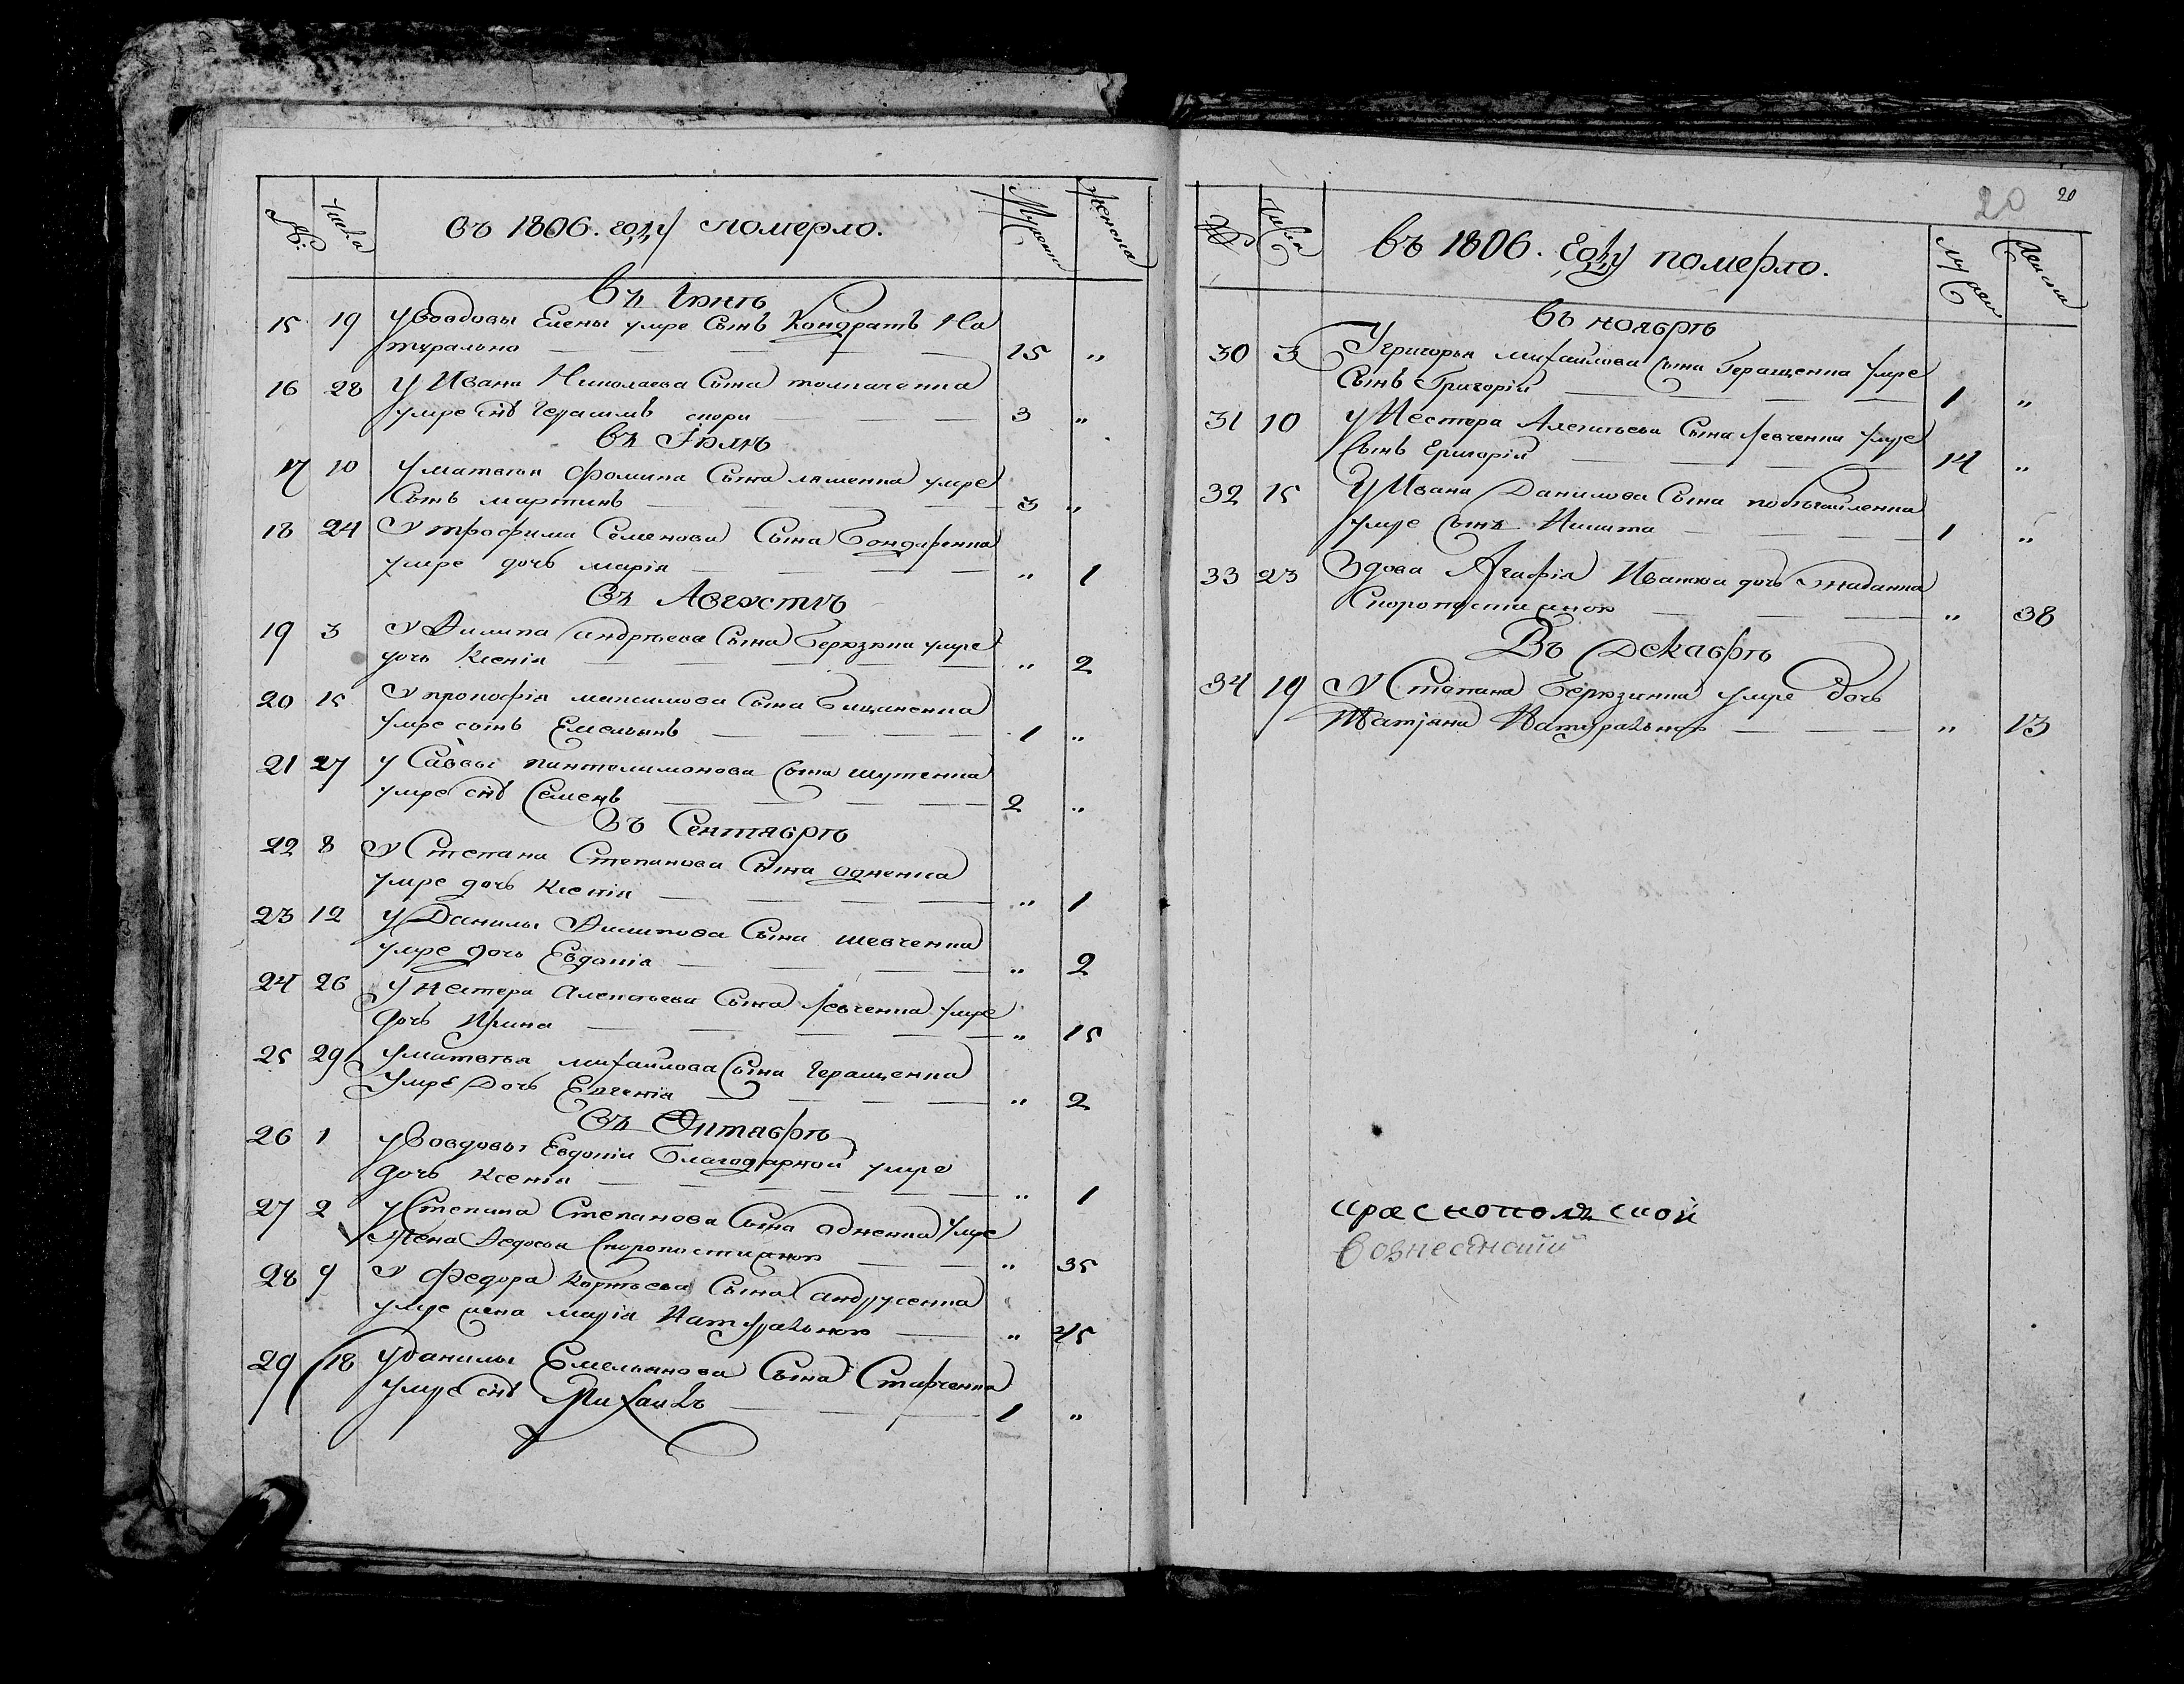 №: числа въ 1806. году померло. Мужеска женска
въ Іюнѣ
15 19 у вовдовы Елены умре Сынъ Кондратъ На
турально 15 „
16 28 У Ивана Николаева Сына толмаченка
умре снъ Герасимъ скори 3 „
въ Іюлѣ
17 10 у матвѣя Фомина Сына ляшенка умре
Сынъ мартинъ 3 „
18 24 У трофима Семенова Сына Бондаренка
умре дочь марія „ 1
въ Августѣ
19 3 У Филипа андрѣева Сына Берюзкна умре
дочь Ксенія „ 2
20 15 У прокофія максимова Сына Бицаненка
умре сынъ Емельянъ 1 „
21 27 у Саввы пантолимонова Сына шутенка
умре снъ Семенъ 2 „
Въ Сентябрѣ
22 8 У Степана Степанова Сына одненка
умре дочь Ксенія „ 1
23 12 У Данилы Филипова Сына шевченка
умре дочь Евдокія „ 2
24 26 у нестера алексѣева Сына Левченка умре
дочь Ирина „ 15
25 29 у матвѣя михаилова Сына геращенка
умре Дочь Евгенія „ 2
въ Октябрѣ
26 1 у вовдовы Евдокіи Благодарной умре
дочь Ксенія „ 1
27 2 у Степана Степанова Сына одненка умре
жена Федосья скоропостижною „ 35
28 9 У Федора Корнѣева Сына андрусенка
умре жена марія Натуральною „ 45
29 18 у данилы Емельянова Сына Старченка
умре снъ Михаилъ 1 „
20 20
№ числа въ 1806. Году померло. Мужеска женска
въ ноябрѣ
30 3 У григорья михаилова Сына Геращенка умре
Сынъ Григорій 1 „
31 10 у Нестера Алексѣева Сына Левченка умре
Сынъ Григорій 14 „
32 15 У Ивана Данилова Сына
умре Сынъ Никита 1 „
33 23 Вдова Агафія Иванова дочь
Скоропостижною „ 38
Въ Декабрѣ
34 19 У Степана Берюзкина умре дочь
Татіяна Натуральною „ 13
краснопольской
вознесенский